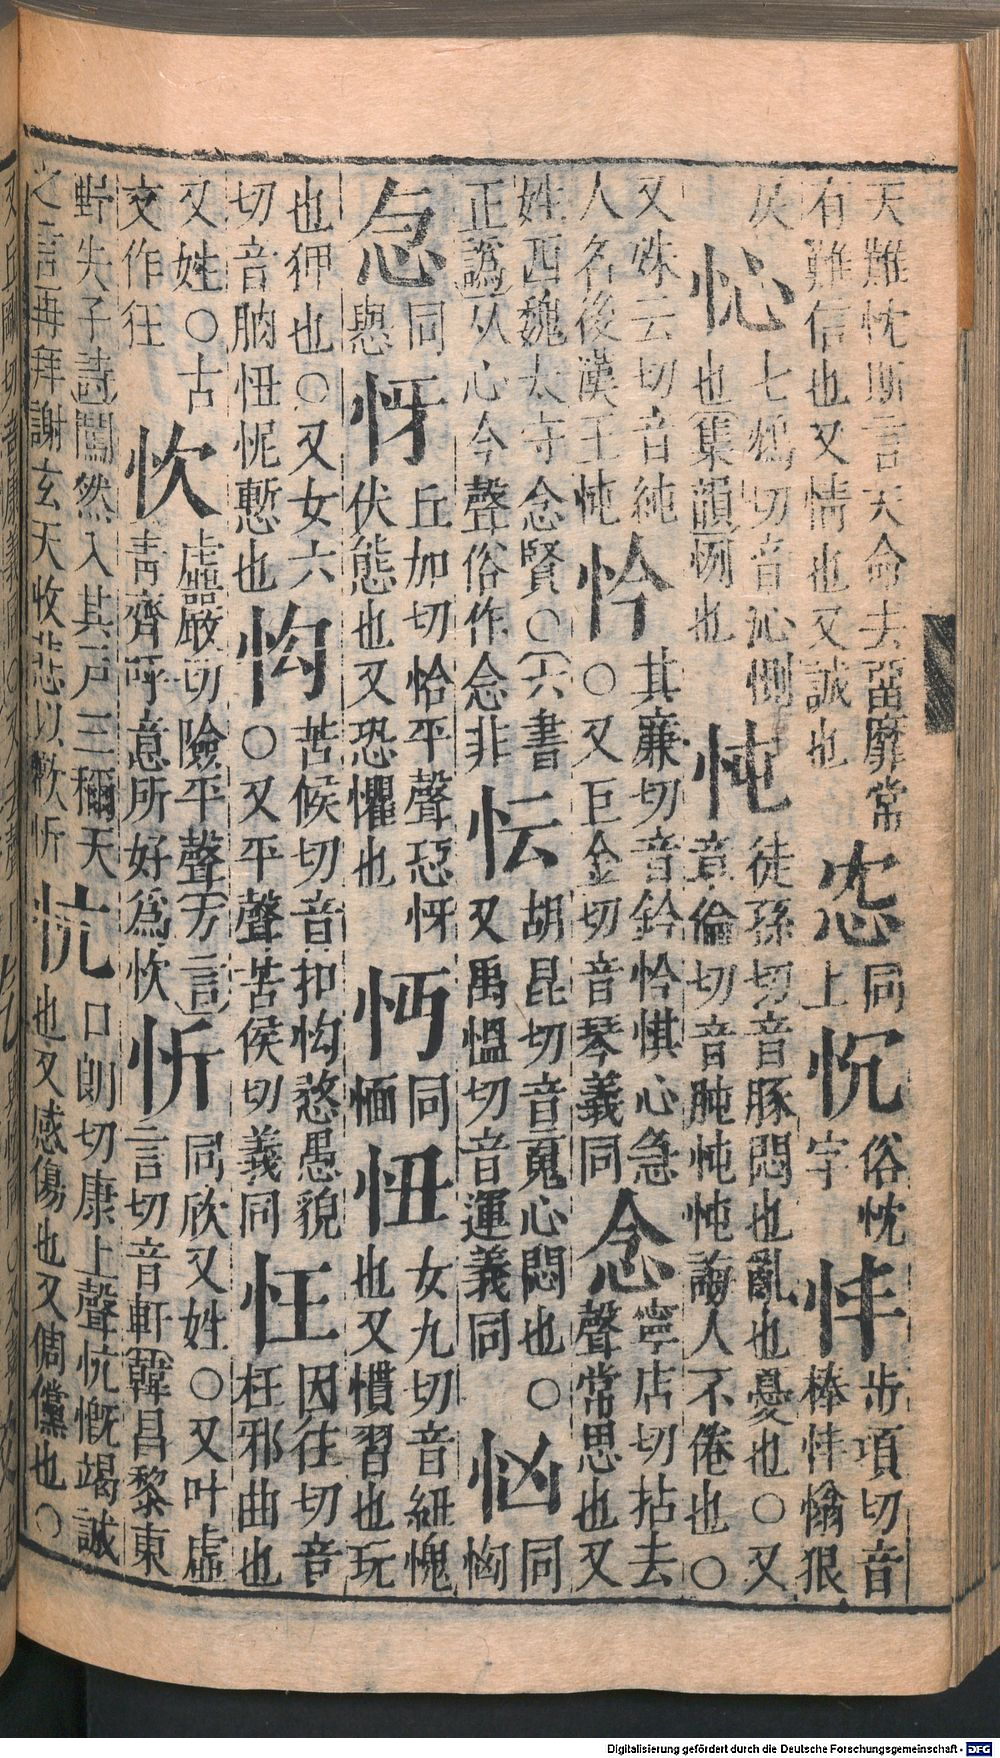 天難忱斯言天命去畱靡常
有難信也又情也又誠也
㤝
同
上
怳
俗忱
字
㤶
步項切音
棒㤶愉狠
戾
忄心
七鴆切音沁惻
也集韻㤡也
忳
徒孫切音豚悶也亂也憂也〇又
章倫切音肫忳忳誨人不倦也〇
又姝云切音純
人名後漢王忳
忴
其廉切音鈐忴惎心急
〇又巨金切音琴義同
念
寧店切拈去
聲常思也又
姓西魏太守念賢〇六書
正譌从心今聲俗作念非
忶
胡昆切音䰟心悶也〇
又禹慍切音運義同
㤑
同
㤑
㤅
同
懇
㤉
丘加切恰平聲惡㤉
伏態也又恐懼也
㤄
同
愐
忸
女九切音紐愧
也又慣習也玩
也狎也〇又女六
切音朒忸怩慙也
怐
苦候切音扣怐愗愚貌
〇又平聲苦侯切義同
忹
因往切音
枉邪曲也
又姓〇古
文作狂
忺
虛嚴切險平聲方言
靑齊呼意所好爲忺
忻
同欣又姓〇又叶虛
言切音軒韓昌黎東
野失子詩闖然入其戸三稱天
之言再拜謝玄天收悲以歡忻
忼
口朗切康上聲忼慨竭誠
也又感傷也又倜儻也〇
Digitalisierung gefördert durch die Deutsche Forschungsgemeinschaft - DFG